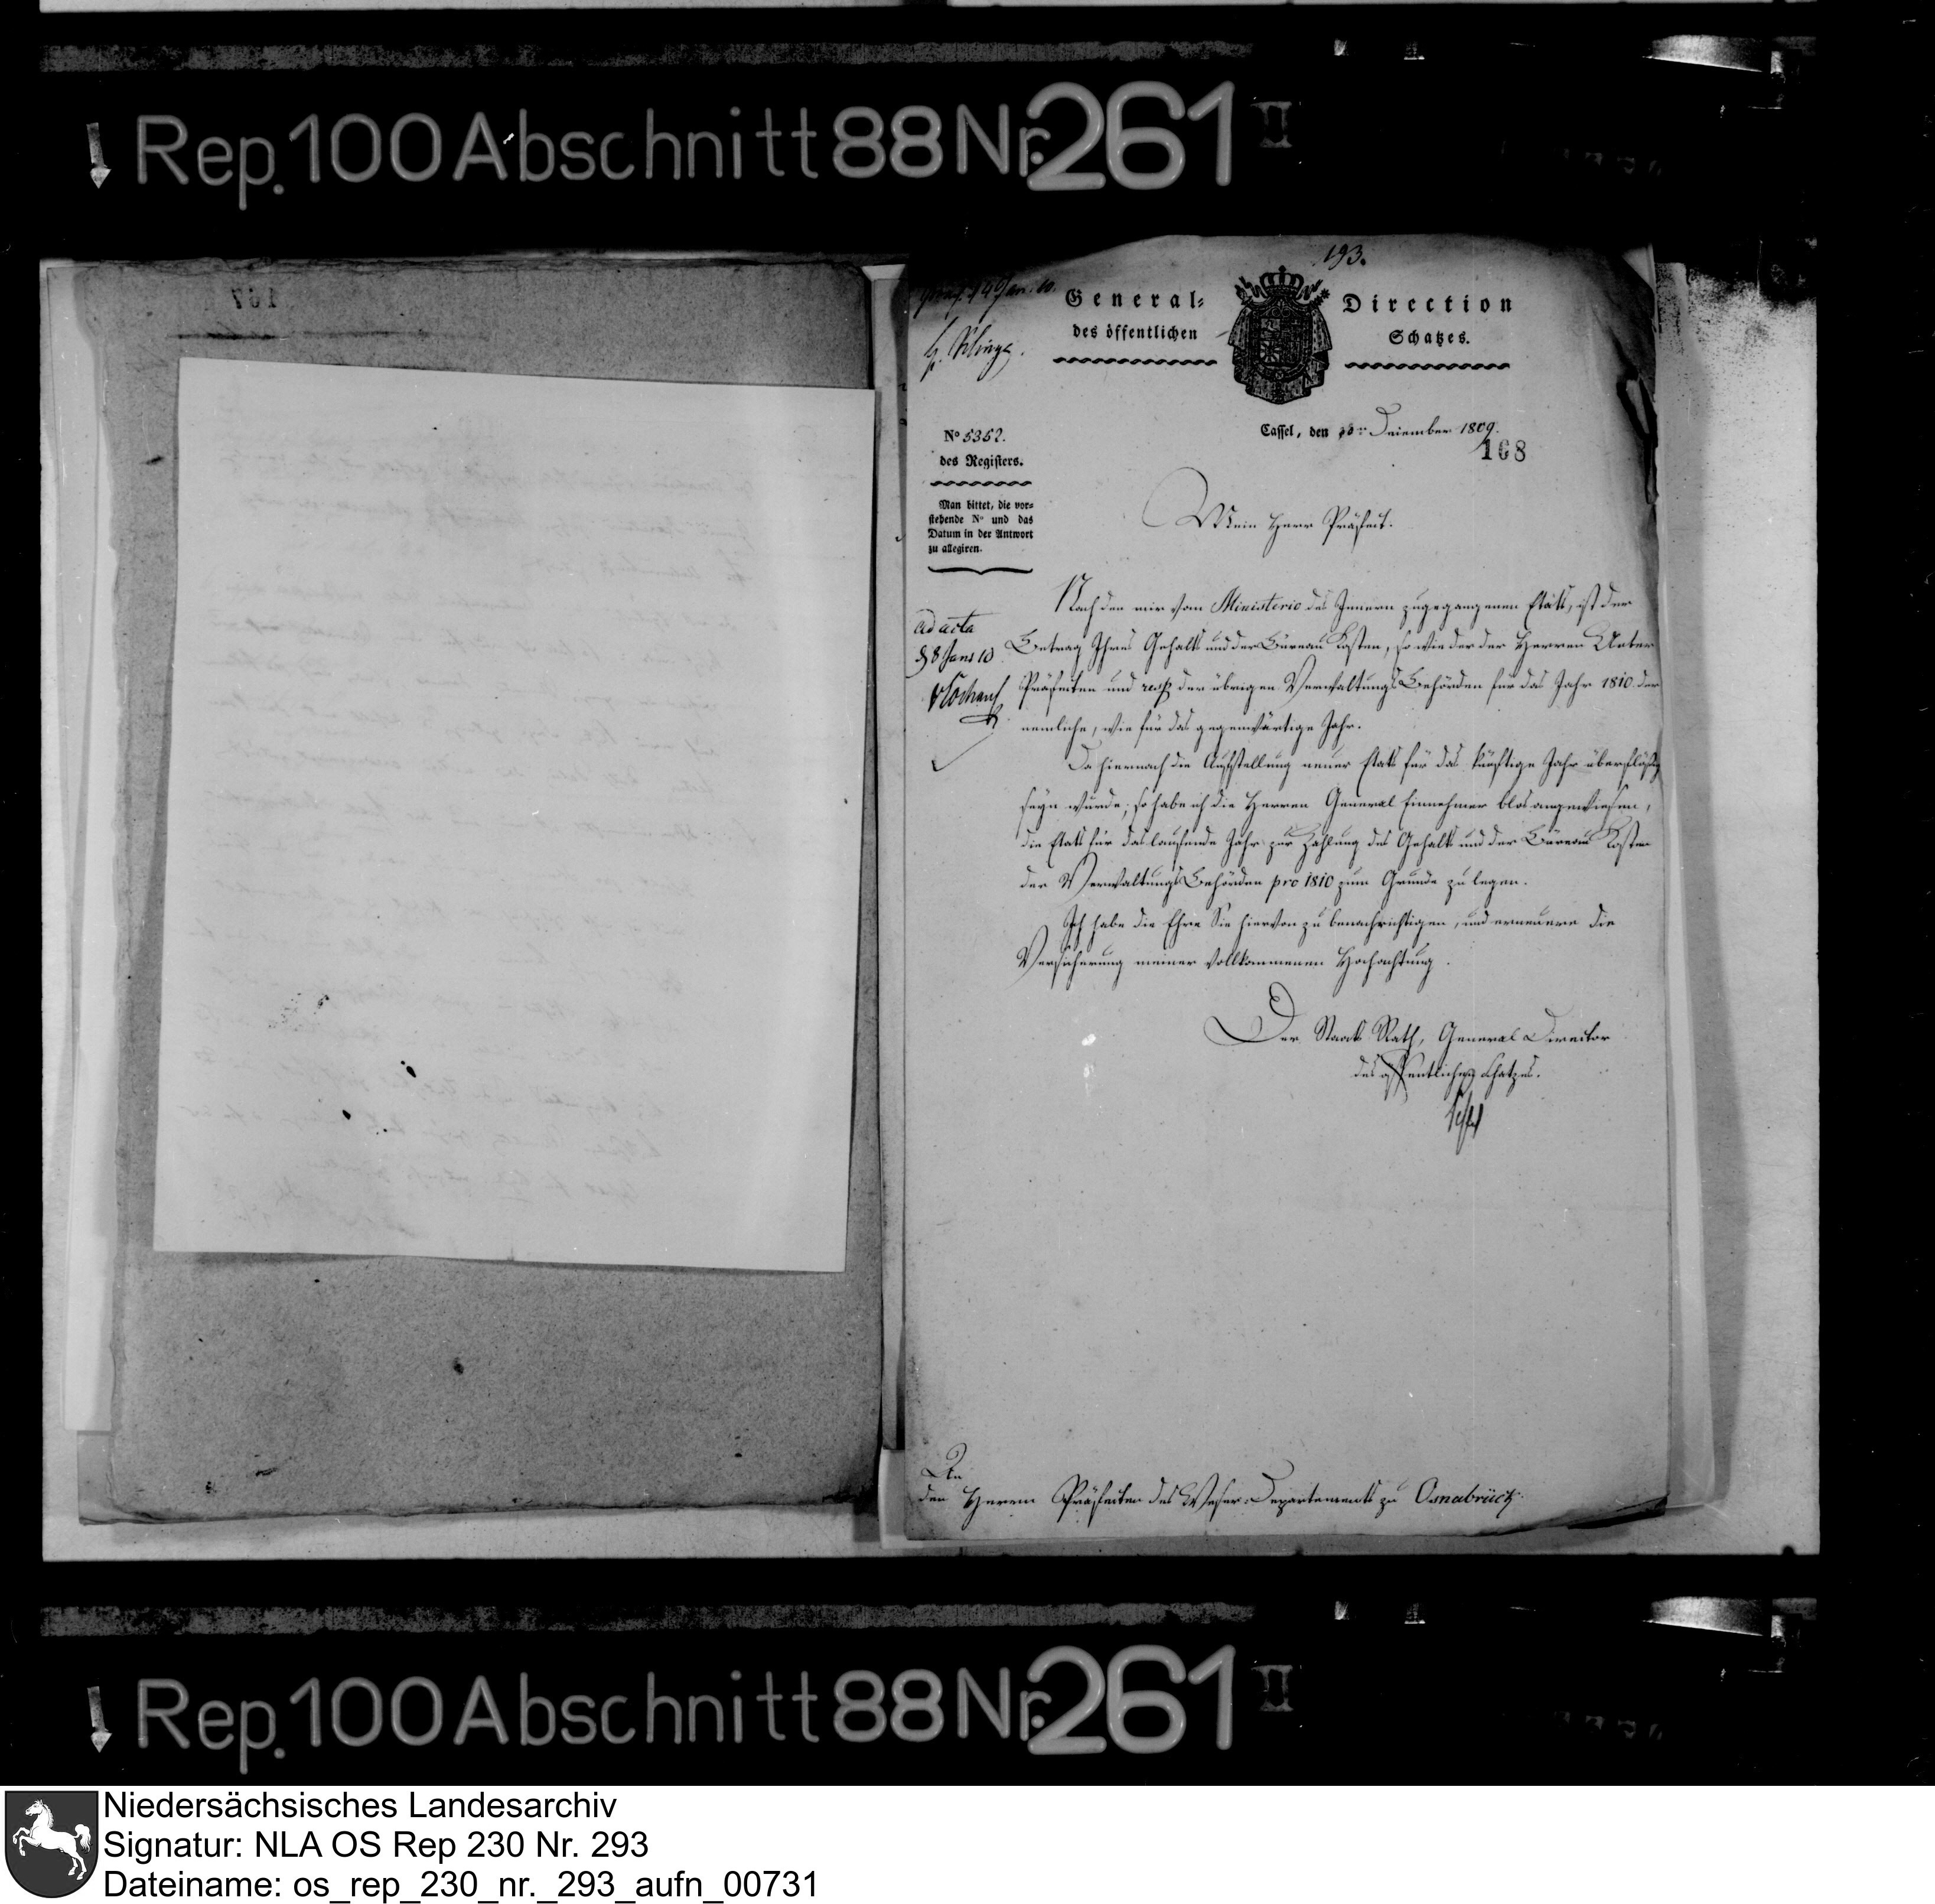 Rep. 100 Abschnitt 88 Nr. 261 II
167
193.
General- Direction
des öffentlichen Schatzes.
No 5352.
des Registers.
Cassel, den Dezember 1809.
168
Man bittet, die vor-
stehende No und das
Datum in der Antwort
zu allegiren.
Mein Herr Präfect.
ad acta
Nach den mir vom Ministerio des Innern zugegangenen Etats, ist der
Betrag Ihres Gehalts und der Büreau Kosten, so wie der der Herren Unter
Präfecten und resp. der übrigen Verwaltungs Behörden für das Jahr 1810 der
nemliche, wie für das gegenwärtige Jahr.
Da hiernach die Aufstellung neuer Etats für das künftige Jahr überflüßig
seyn würde; so habe ich die Herren General Einnehmer blos angewiesen,
die Etats für das laufende Jahr zur Zahlung des Gehalts und der Büreau Kosten
der Verwaltungs Behörden pro 1810 zum Grunde zu legen.
Ich habe die Ehre Sie hiervon zu benachrichtigen, und erneuere die
Versicherung meiner vollkommenen Hochachtung.
Der Staats Rath, General Director
des öffentlichen Schatzes.
An
den Herrn Präfecten des Weser-Departements zu Osnabrück.
Rep. 100 Abschnitt 88 Nr. 261 II
Niedersächsisches Landesarchiv
Signatur: NLA OS Rep 230 Nr. 293
Dateiname: os_rep_230_nr._293_aufn_00731